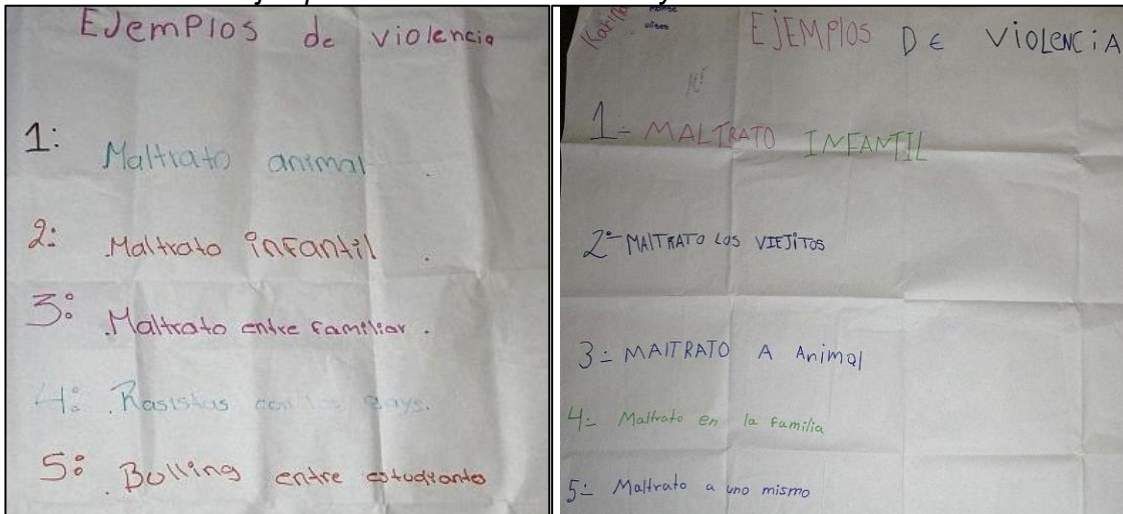 EJemPlos de violencia
1: Maltrato animal
2: Maltrato infantil.
3: Maltrato entre familiar.
4: Rasistas con los gays.
5: Bolling entre estudiantes
Karina
EJEMPlOS DE ViOLENCiA
1- MALTRATO INFANTIL
2- MAlTRATO LOS VIEJiTOS
3- MAlTRATO A Animal
4- Maltrato en la familia
5- Maltrato a uno mismo